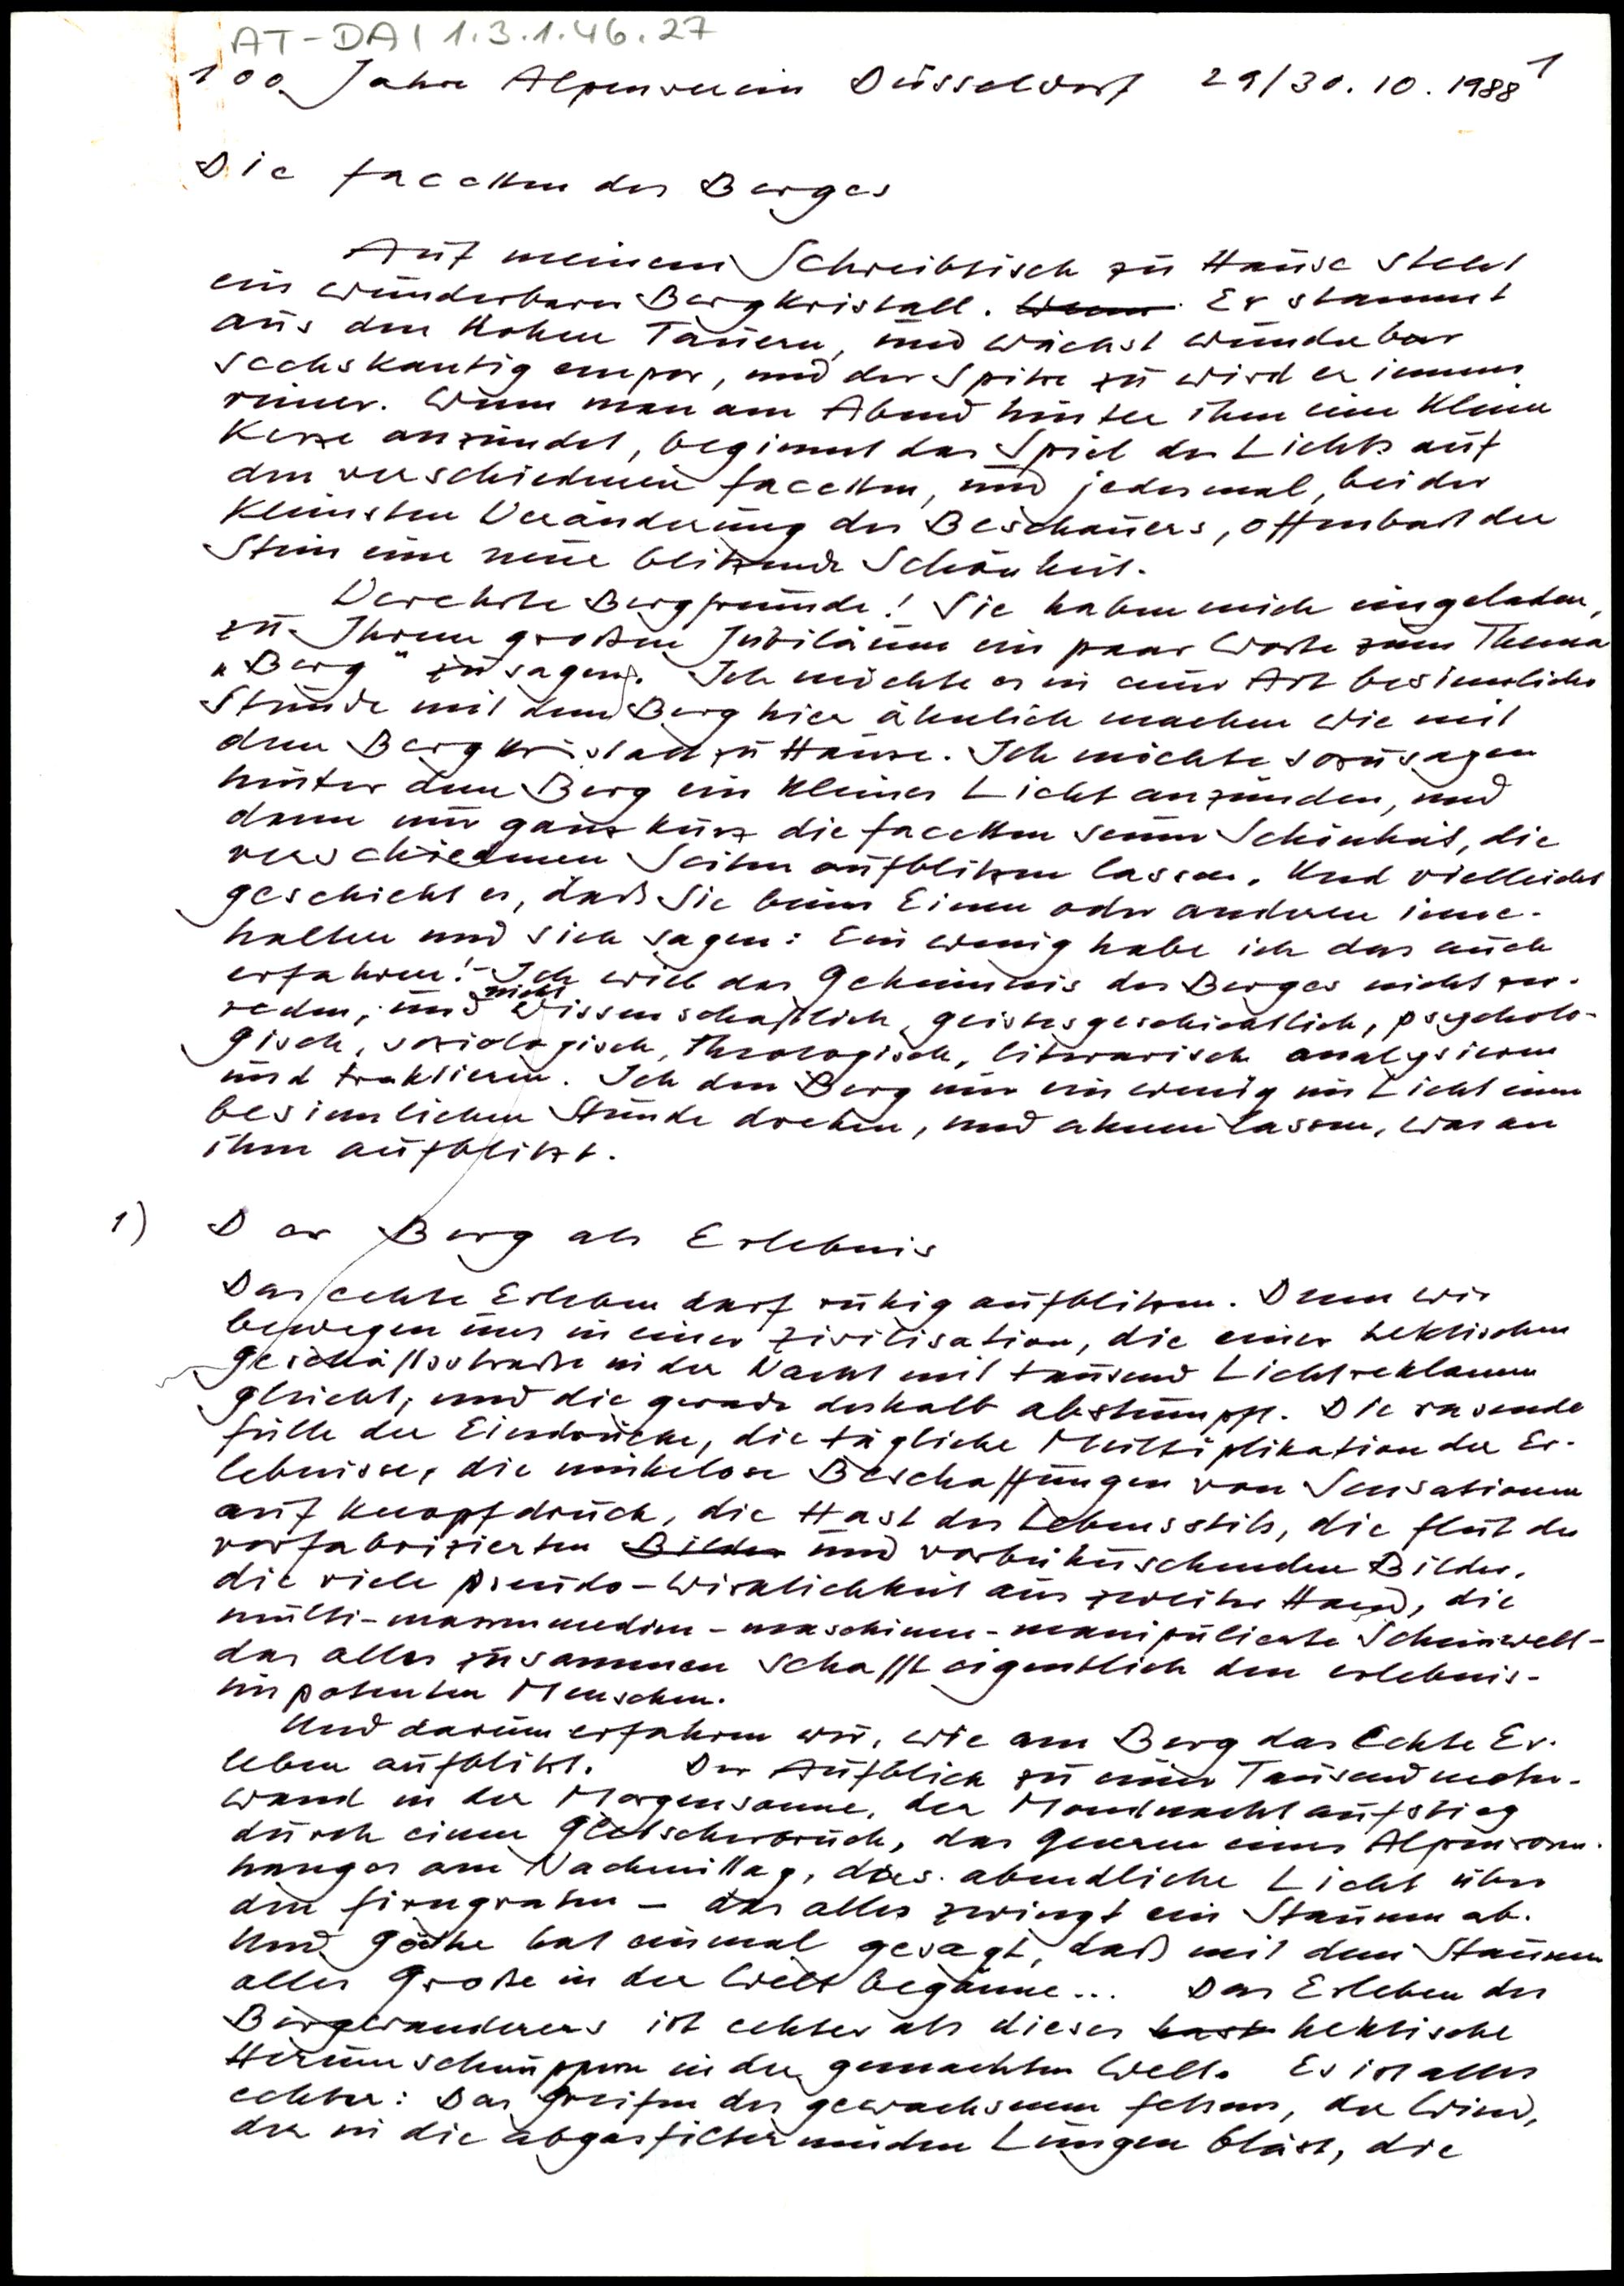 AT-DA | 1.3.1.46.27
1
100 Jahre Alpenverein Düsseldorf 29/30.10.1988
Die Facetten des Berges
Auf meinem Schreibtisch zu Hause steht
ein wunderbarer Bergkristall. Wenn Er stammt
aus den Hohen Tauern, und wächst wunderbar
sechskantig empor, und der Spitze zu wird er immer
reiner. Wenn man am Abend hinter ihm eine kleine
Kerze anzündet, beginnt das Spiel des Lichts auf
den verschiedenen Facetten, und jedesmal, bei der
kleinsten Veränderung des Beschauers, offenbart der
Stein eine neue blitzende Schönheit.
Verehrte Bergfreunde! Sie haben mich eingeladen,
zu Ihrem großen Jubiläum ein paar Worte zum Thema
"Berg" zu sagen. Ich möchte es in einer Art besinnlicher
Stunde mit dem Berg hier ähnlich machen wie mit
dem Bergkristall zu Hause. Ich möchte sozusagen
hinter dem Berg ein kleines Licht anzünden, und
dann nur ganz kurz die Facetten seiner Schönheit, die
verschiedenen Seiten aufblitzen lassen. Und vielleicht
geschieht es, daß Sie beim Einen oder anderen inne-
halten und sich sagen: Ein wenig habe ich das auch
erfahren! - Ich will das Geheimnis des Berges nicht zer-
reden, und nicht wissenschaftlich, geistesgeschichtlich, psycholo-
gisch, soziologisch, theologisch, literarisch analysieren
und traktieren. Ich den Berg nur ein wenig im Licht einer
besinnlichen Stunde drehen, und ahnen lassen, was an
ihm aufblitzt.
1) Der Berg als Erlebnis
Das echte Erleben darf ruhig aufblitzen. Denn wir
bewegen uns in einer Zivilisation, die einer hektischen
Geschäftsstraße in der Nacht mit tausend Lichtreklamen
gleicht, und die gerade deshalb abstumpft. Die rasende
Fülle der Eindrücke, die tägliche Multiplikation der Er-
lebnisse, die mühelose Beschaffungen von Sensationen
auf Knopfdruck, die Hast des Lebensstils, die Flut der
vorfabrizierten Bilder und vorbeihuschenden Bilder,
die viele Pseudo-Wirklichkeit aus zweiter Hand, die
multi-massenmedien-maschinen-manipulierte Scheinwelt -
das alles zusammen schafft eigentlich den erlebnis-
impotenten Menschen.
Und darum erfahren wir, wie am Berg das Echte Er-
leben aufblitzt. Der Aufblick zu einer Tausendmeter-
wand in der Morgensonne, der Mondnachtaufstieg
durch einen Gletscherbruch, das Queren eines Alpenrosen-
hanges am Nachmittag, das abendliche Licht über
den Firngraten - das alles zwingt ein Staunen ab.
Und Goethe hat einmal gesagt, daß mit dem Staunen
alles Große in der Welt begänne... Das Erleben des
Bergwanderers ist echter als dieses hast hektische
Herumschnuppern in der gemachten Welt. Es ist alles
echter: Das Greifen des gewachsenen Felsens, der Wind,
der in die abgasfiltermüden Lungen bläst, die